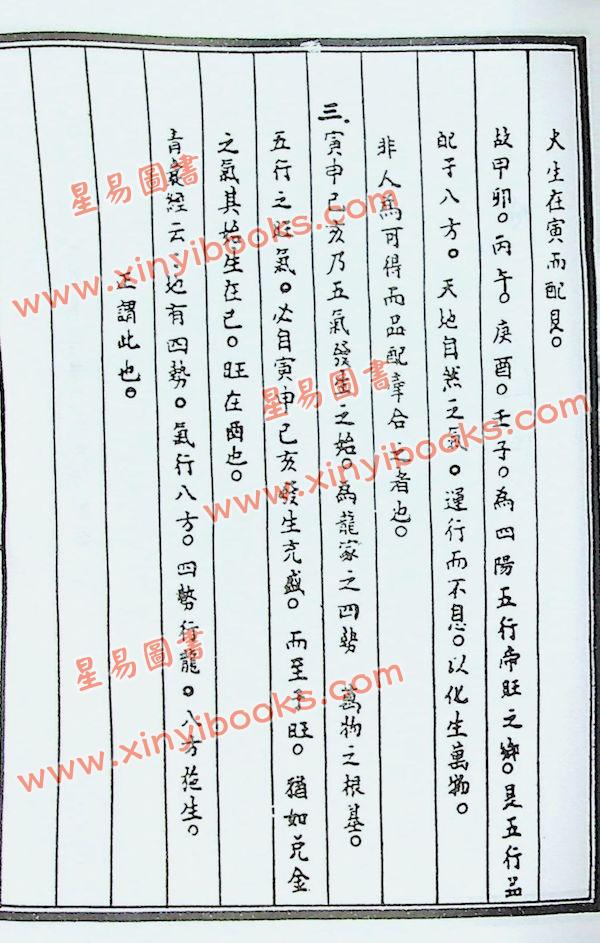 火生在寅而配艮。
故甲卯。丙午。庚酉。壬子。為四陽五行帝旺之鄉。是五行品
配于八方。天地自然之氣。運行而不息。以化生萬物。
非人為可得而品配牽合之者也。
三.寅申巳亥乃五氣發生之始。為龍家之四勢 萬物之根基。
五行之旺氣。必自寅申巳亥發生充盛。而至于旺。猶如兌金
之氣其始生在巳。旺在酉也。
青囊經云、地有四勢。氣行八方。四勢行龍。八方施生。
正謂此也。
星易圖書
www.xinyibooks.com
星易圖書
www.xinyibooks.com
星易圖書
www.xinyibooks.com